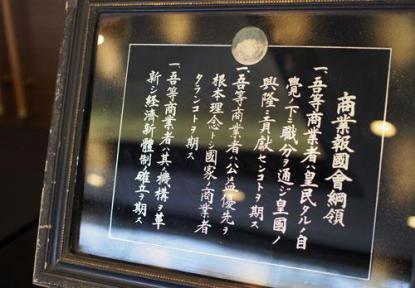 商業報國會綱領
一、吾等商業者ハ皇民タルノ自
覺ノ下ニ職分ヲ通ジ皇國ノ
興隆ニ貢獻センコトヲ期ス
一、吾等商業者ハ公益優先ヲ
根本理念トシ國家ノ商業者
タランコトヲ期ス
一、吾等商業者ハ其ノ機構ヲ革
新シ経済新體制ノ確立ヲ期ス